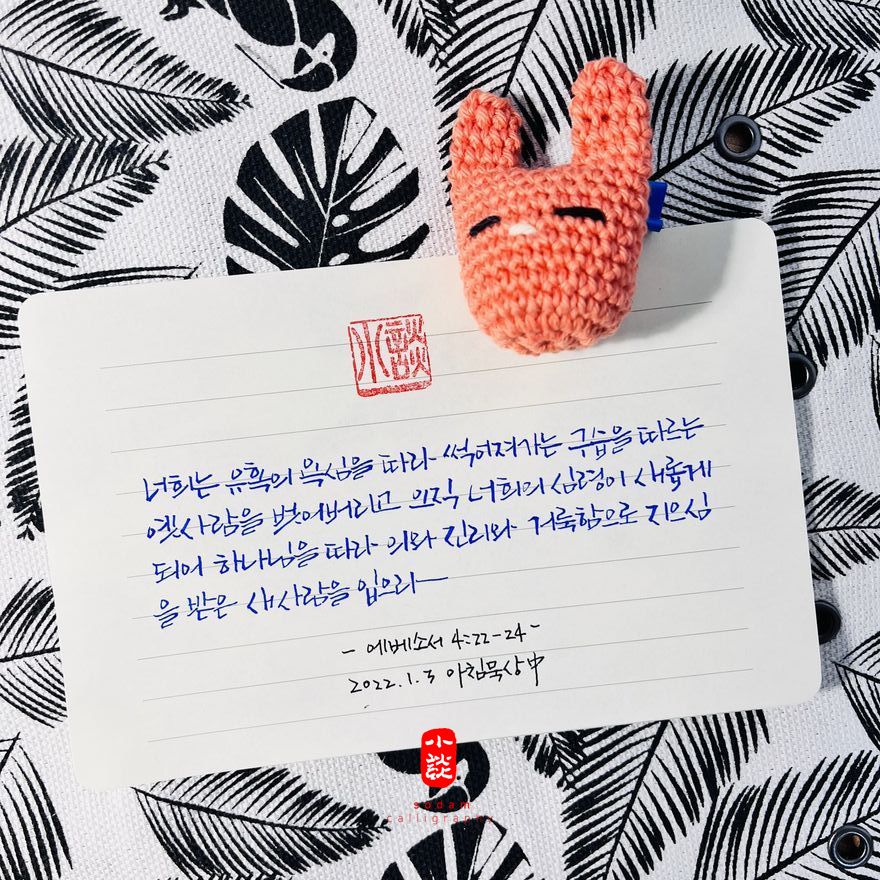 小談
너희는 유혹의 욕심을 따라 썩어져가는 구습을 따르는
옛사람을 벗어버리고 오직 너희의 심령이 새롭게
되어 하나님을 따라 의와 진리와 거룩함으로 지으심
을 받은 새사람을 입으라
- 에베소서 4:22-24 -
2022.1.3 아침묵상中
小談
sodam
calligraphy